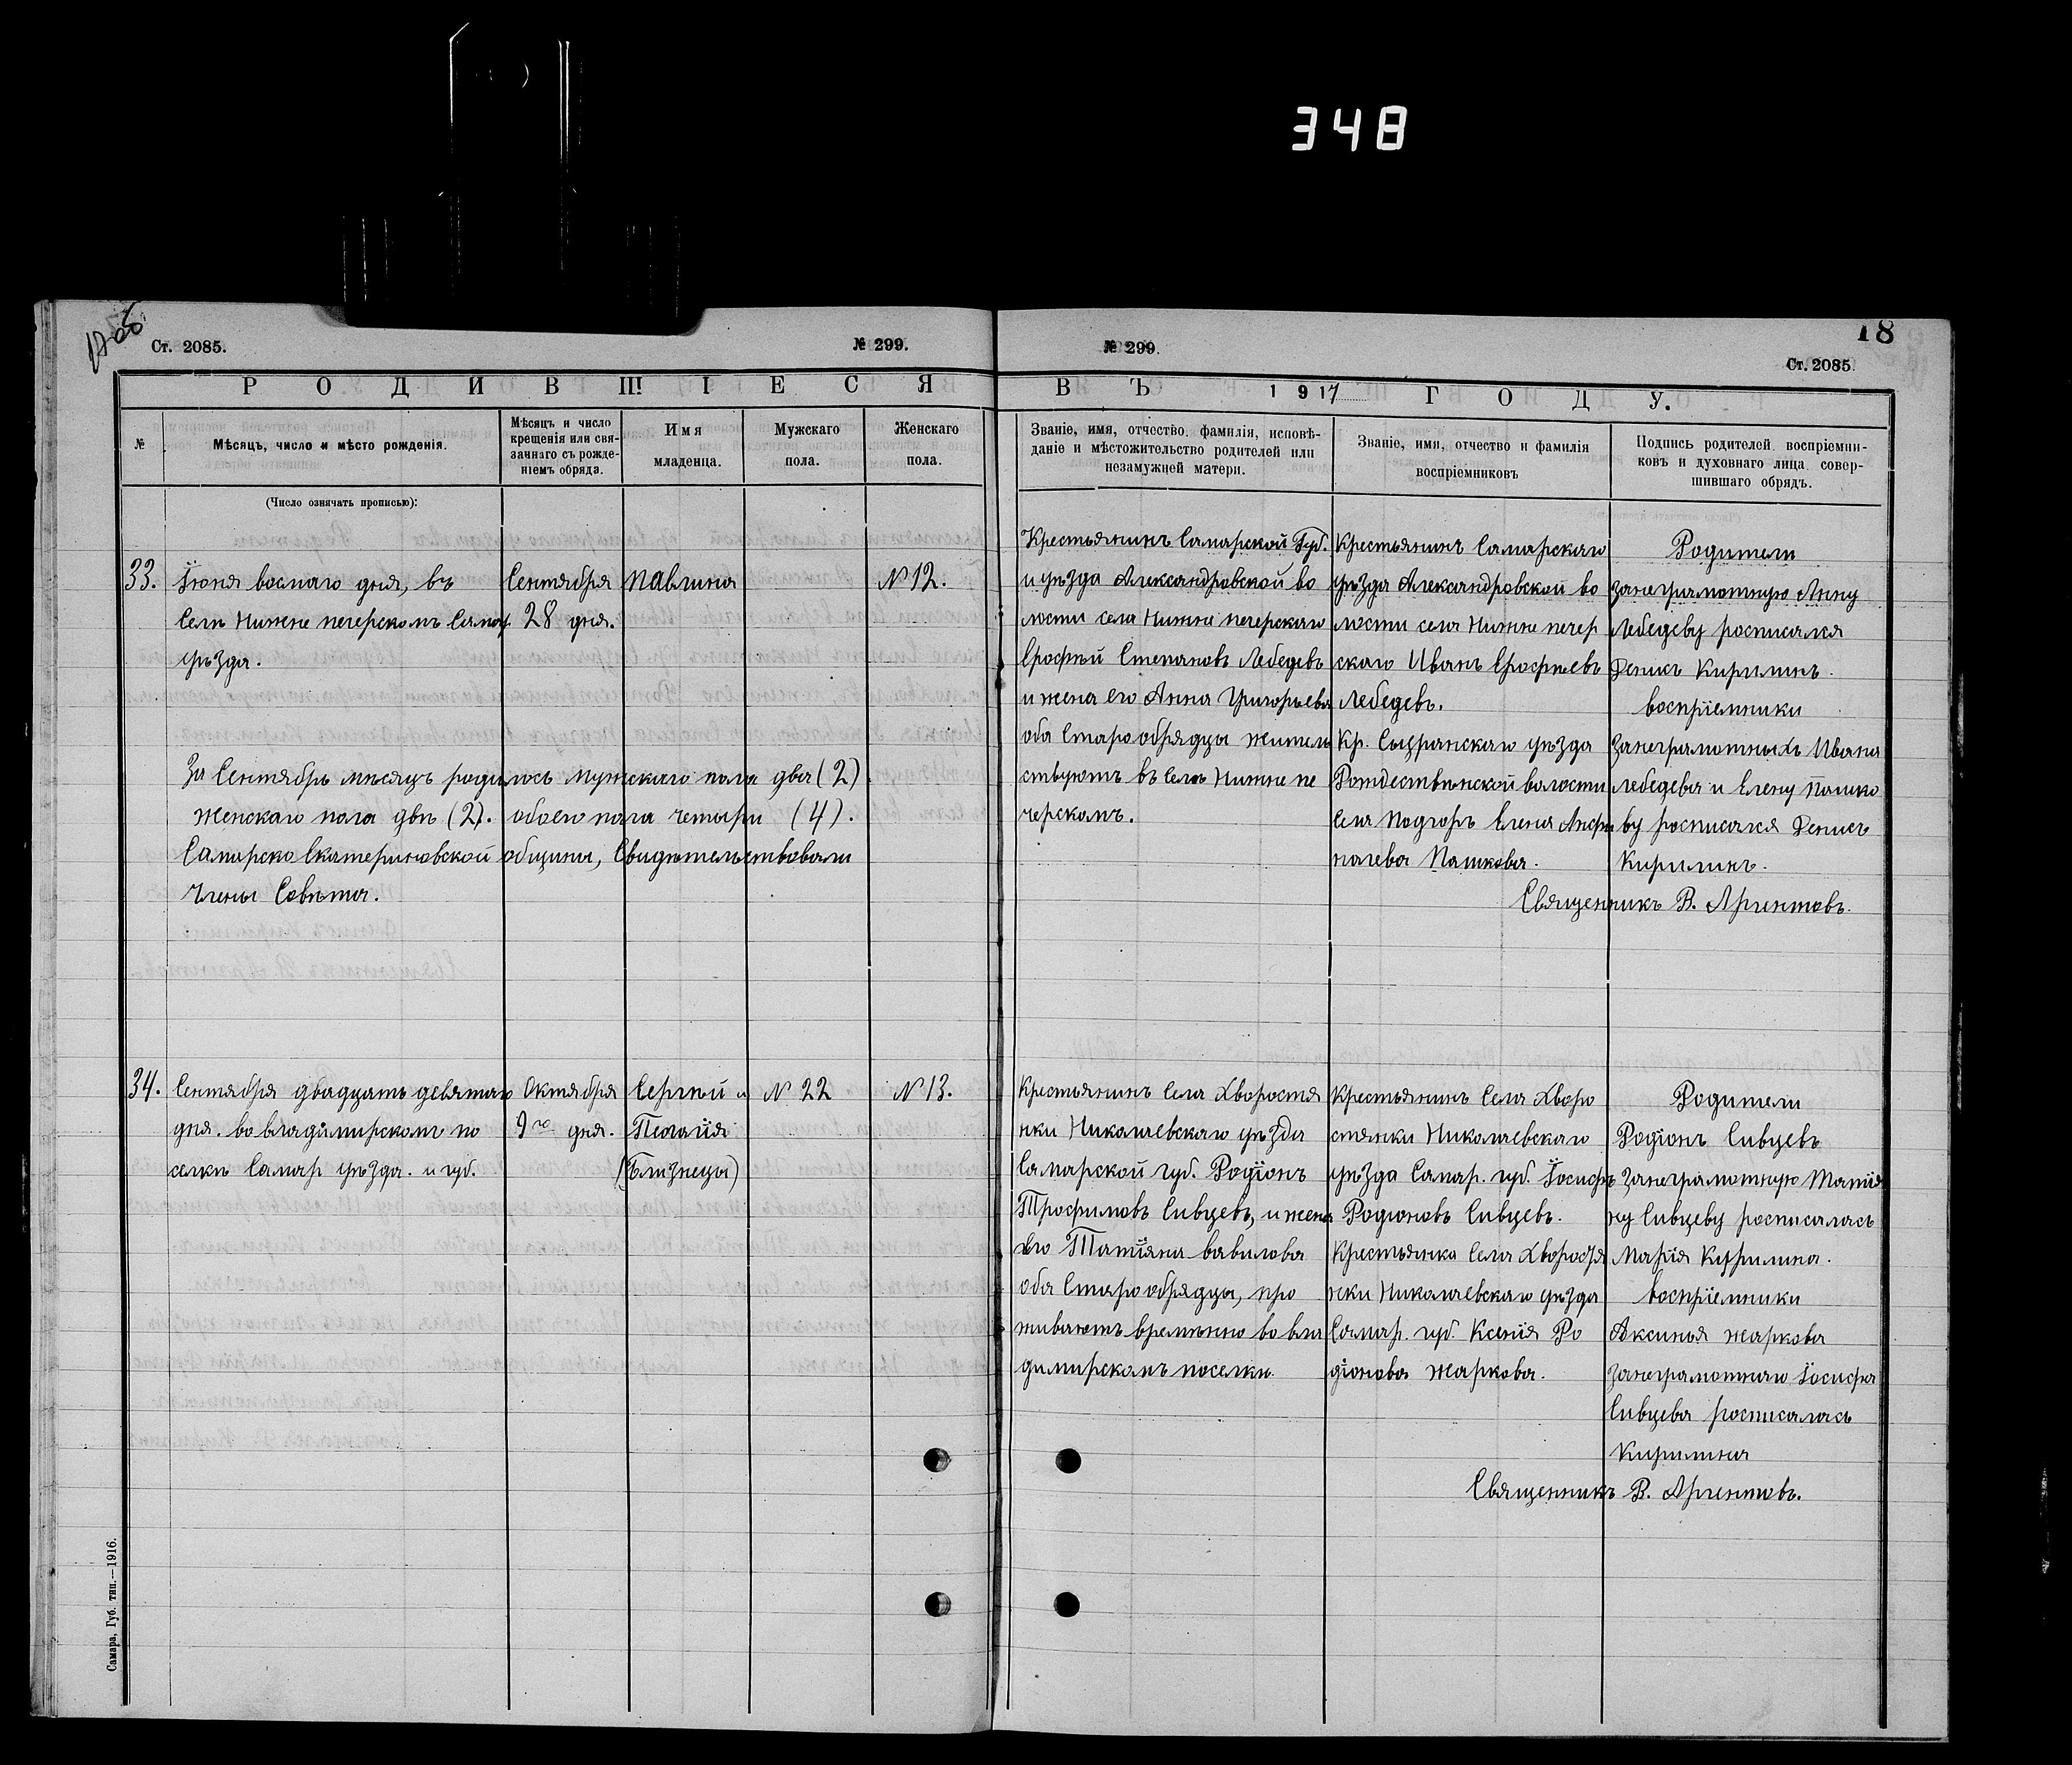 348
18
Ст. 2085.
№ 299.
№ 299.
Ст. 2085.
РОДИВШІЕСЯ
ВЪ 1917 ГОДУ.
№
Мѣсяцъ, число и мѣсто рожденія.
Мѣсяцъ и число
крещенія или свя-
зачнаго съ рожде-
ніемъ обряда.
Имя
младенца.
Мужскаго
пола.
Женскаго
пола.
Званіе, имя, отчество, фамилія, исповѣ-
даніе и мѣстожительство родителей или
незамужней матери.
Званіе, имя, отчество и фамилія
воспріемниковъ
Подпись родителей воспріемни-
ковъ и духовнаго лица совер-
шившаго обрядъ.
(Число означать прописью):
33.
Іюня восмаго дня, въ
Селѣ Нижне печерскомъ Самар
уѣзда.
Сентября
28 дня.
Павлина
№ 12.
Крестьянинъ Самарской Губ.
и уѣзда Александровской во
лости села Нижне печерскаго
Ерофѣй Степановъ Лебедевъ
и жена его Анна Григорьева
оба Старообрядцы жительь
ствуютъ въ Селѣ Нижне пе
черскомъ.
Крестьянинъ Самарскаго
уѣзда Александровской во
лости села Нижне печер
скаго Иванъ Ерофѣевъ
Лебедевъ.
Кр. Сызранскаго уѣзда
Рождественской волости
Села Подгорь Елена Анфи
ногева Пашкова.
Родители
За неграмотную Анну
Лебедеву росписался
Денисъ Кирилинъ.
воспріемники
За неграмотныхъ Ивана
Лебедева и Елену Пашко
ву росписался Денисъ
Кирилинъ.
Священникъ В. Аргентовъ.
За Сентябрь мѣсяцъ родилось мужскаго пола два (2)
женскаго пола двѣ (2). обоего пола четыри (4).
Самарско Екатериновской общины, Свидѣтельствовали
Члены Совѣта.
34.
Сентября двадцать девятаго
дня. во владимирскомъ по
селкѣ Самар уѣзда. и губ.
Октября
9го дня.
Сергѣй и
Пелагія
(Близнецы)
№ 22
№ 13.
Крестьянинъ Села Хворостя
нки Николаевскаго уѣзда
Самарской губ. Родіонъ
Трофимовъ Сивцевъ, и жена
его Татіяна вавилова
оба Старообрядцы, про
живаютъ временно во вла
димирскомъ поселки.
Крестьянинъ Села Хворо
стянки Николаевскаго
уѣзда Самар. губ. Іосифъ
Родионовъ Сивцевъ.
Крестьянка Села Хворостя
нки Николаевскаго уѣзда
Самар. губ. Ксенія Ро
діонова Жаркова.
Родители
Родіонъ Сивцевъ
За неграмотную Татія
ну Сивцеву росписалась
Марія Кирилина.
воспріемники
Аксинья Жаркова
За неграмотнаго Іосифа
Сивцева росписалась
Кирилина
Священникъ В. Аргентовъ.
Самара, Губ. тип.—1916.